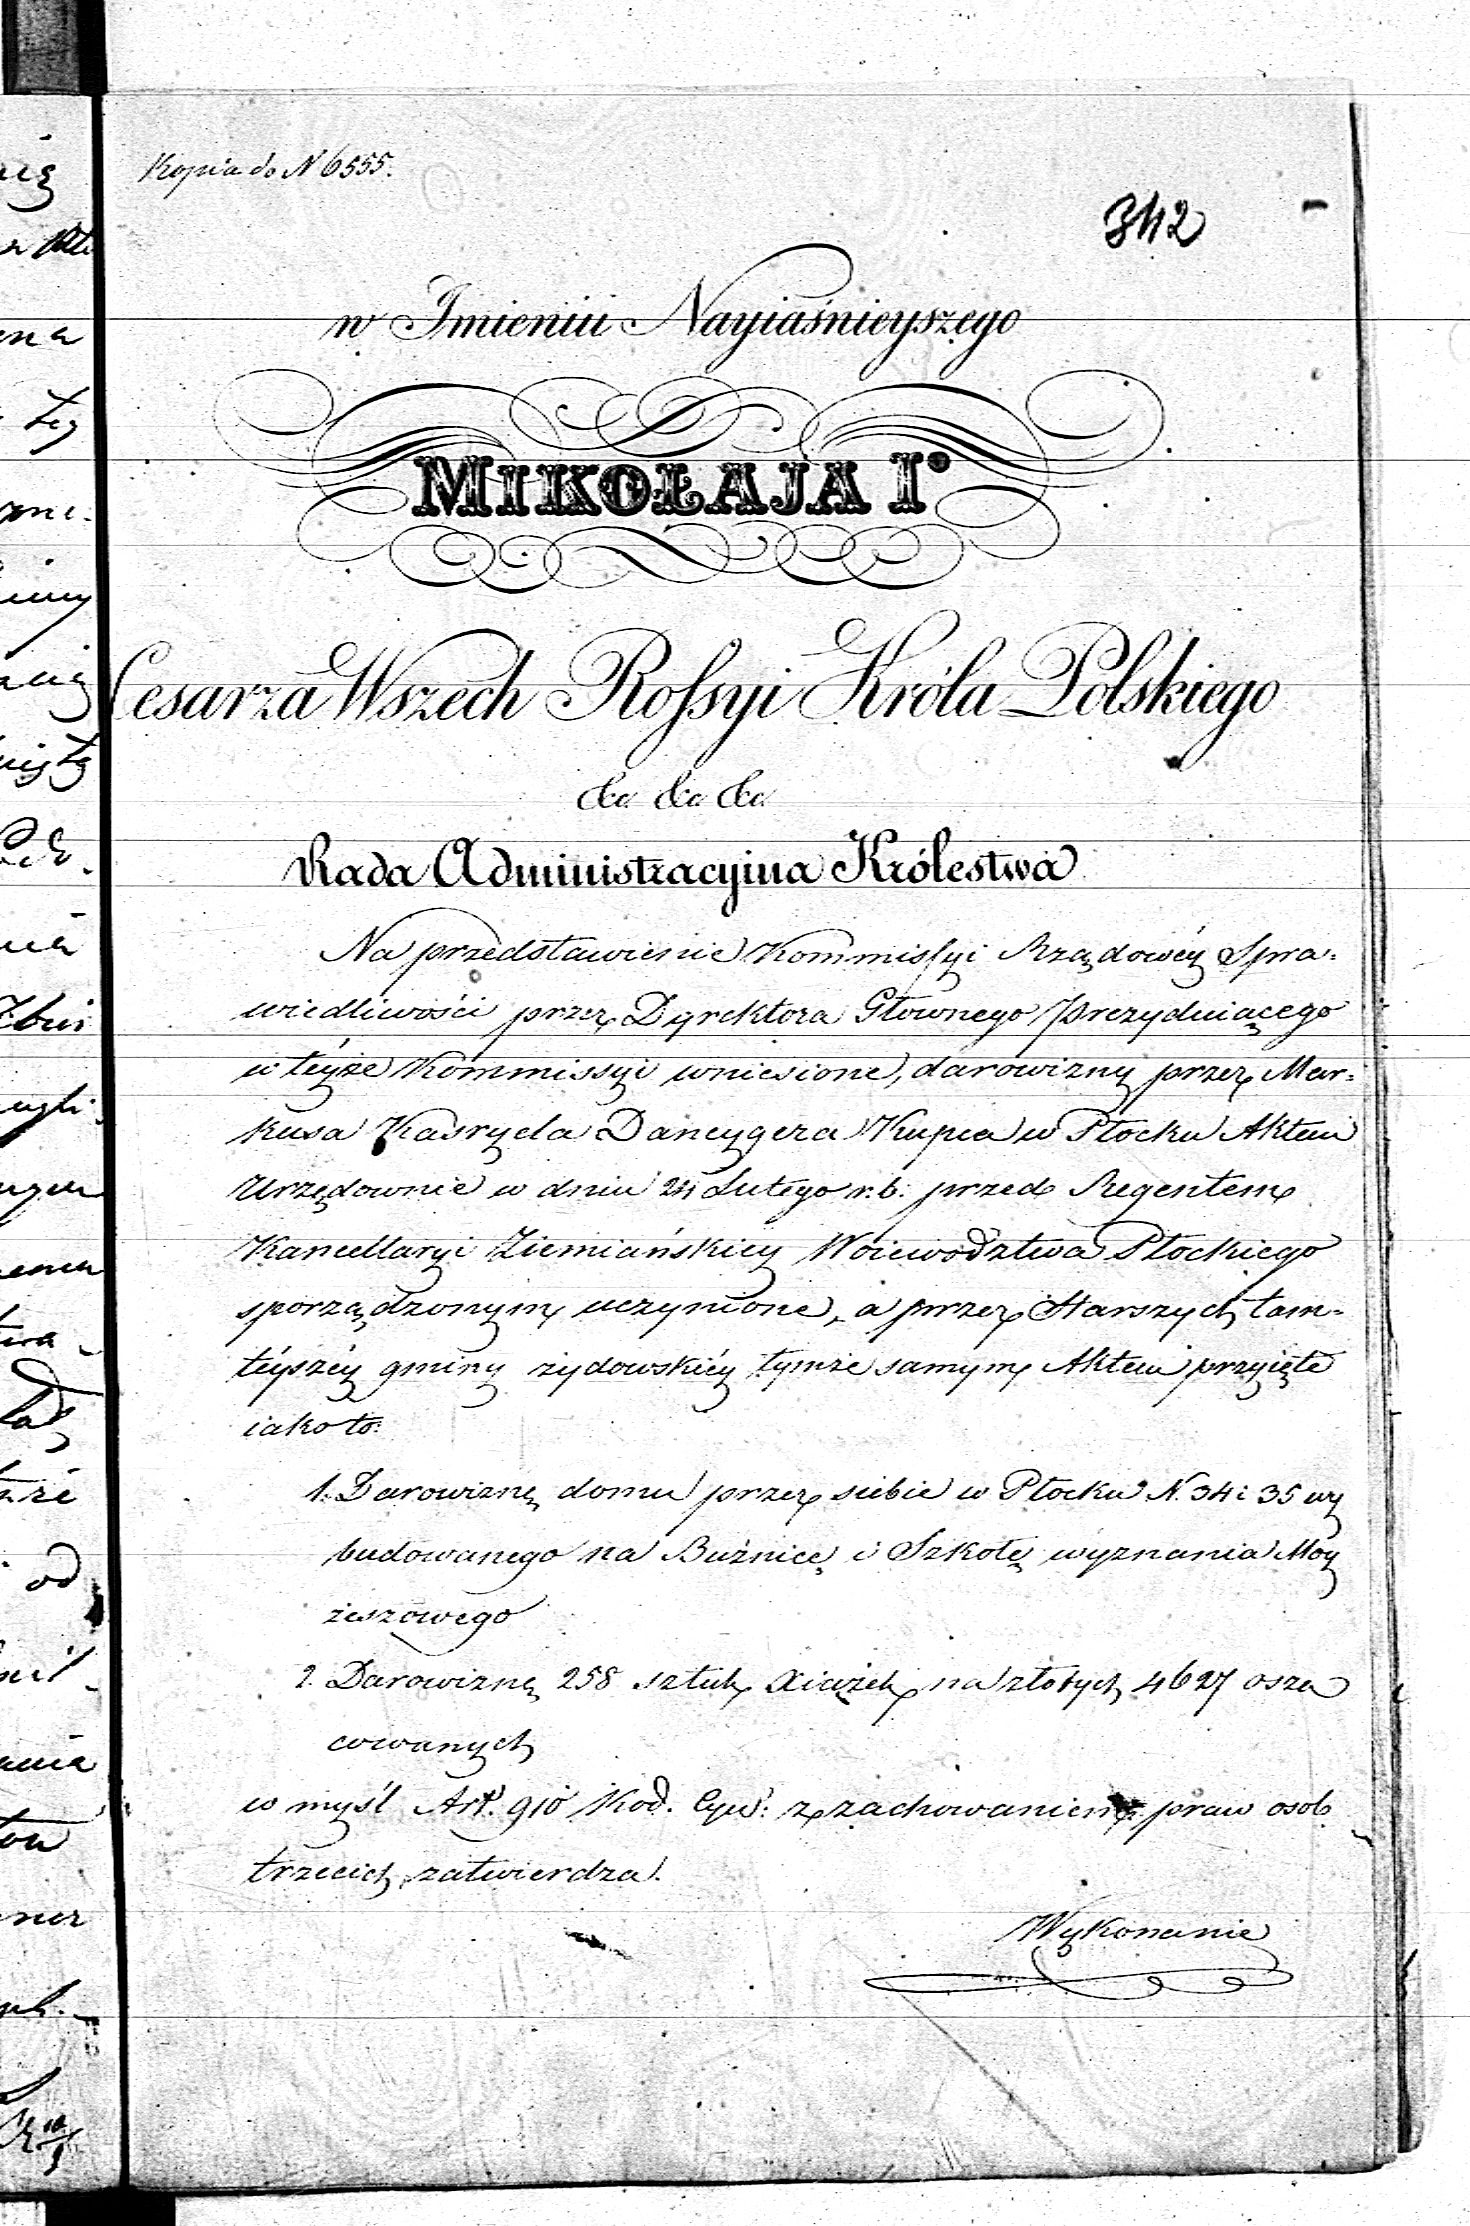 Kopia do N 6555.
342
w Imieniu Nayiaśnieyszego
MIKOŁAJA Iº
Cesarza Wszech Rossyi Króla Polskiego
&c &c &c
Rada Administracyina Królestwa
Na przedstawienie Kommissyi Rządowéy Spra=
wiedliwości przez Dyrektora Głownego Prezyduiącego
w téyże Kommissyi wniesione, darowizny przez Mar=
kusa Kasryela Dancygera Kupca w Płocku Aktem
Urzędownie w dniu 24 Lutego r. b. przed Regentem
Kancellaryi Ziemiańskiey Woiewodztwa Płockiego
sporządzonym uczynione, a przez Starszych tam=
téyszéy gminy żydowskiéy tymże samym Aktem przyięte
iako to:
1. Darowiznę domu przez siebie w Płocku N. 34 i 35 wy
budowanego na Bużnicę i Szkołę wyznania Moy
żeszowego
2. Darowiznę 258 sztuk Xiążek na złotych 4627 osza
cowanych
w myśl Art. 910 Kod. Cyw: z zachowaniem praw osob
trzecich zatwierdza.
Wykonanie